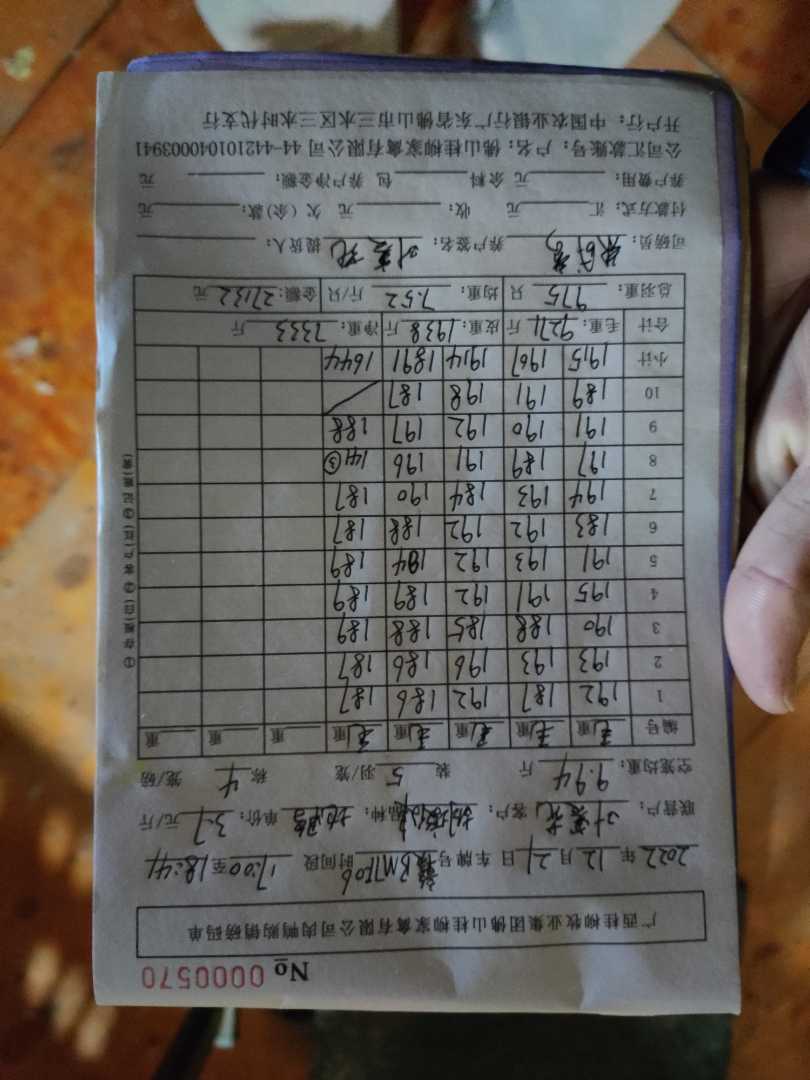 No 0000570
广西桂柳牧业集团佛山桂柳家禽有限公司肉鸭购销磅码单
2022年 12月 21日 车牌号 BM7F06 时间段 17:00至18:41
联营户: 客户: 品种: 单价: 3.7 元/斤
空笼均重: 9.94 斤 装 5 羽/笼 称 4 笼/磅
编号 毛重 毛重 毛重 毛重 毛重 重 重 重
1 192 187 192 186 187
2 193 193 196 186 187
3 190 188 185 188 189
4 195 191 192 189 189
5 191 193 192 184 189
6 183 192 192 188 187
7 194 193 184 190 187
8 197 189 191 196 141③
9 191 190 192 197 188
10 189 191 198 187
小计 1915 1907 1914 1891 1644
合计 毛重: 9271 斤 皮重: 1938 斤 净重: 7333 斤
总羽重: 975 只 均重: 7.52 斤/只 金额: 27132 元
司磅员: 养户签名: 提货人:
付款方式: 汇 元 收: 元 欠(余)款: 元
养户费用: 元 余料 包 养户净金额: 元
公司汇款账号: 户名: 佛山桂柳家禽有限公司 44-442101040003941
开户行: 中国农业银行广东省佛山市三水区三水时代支行
①存根(白)②客户(红)③记账(黄)